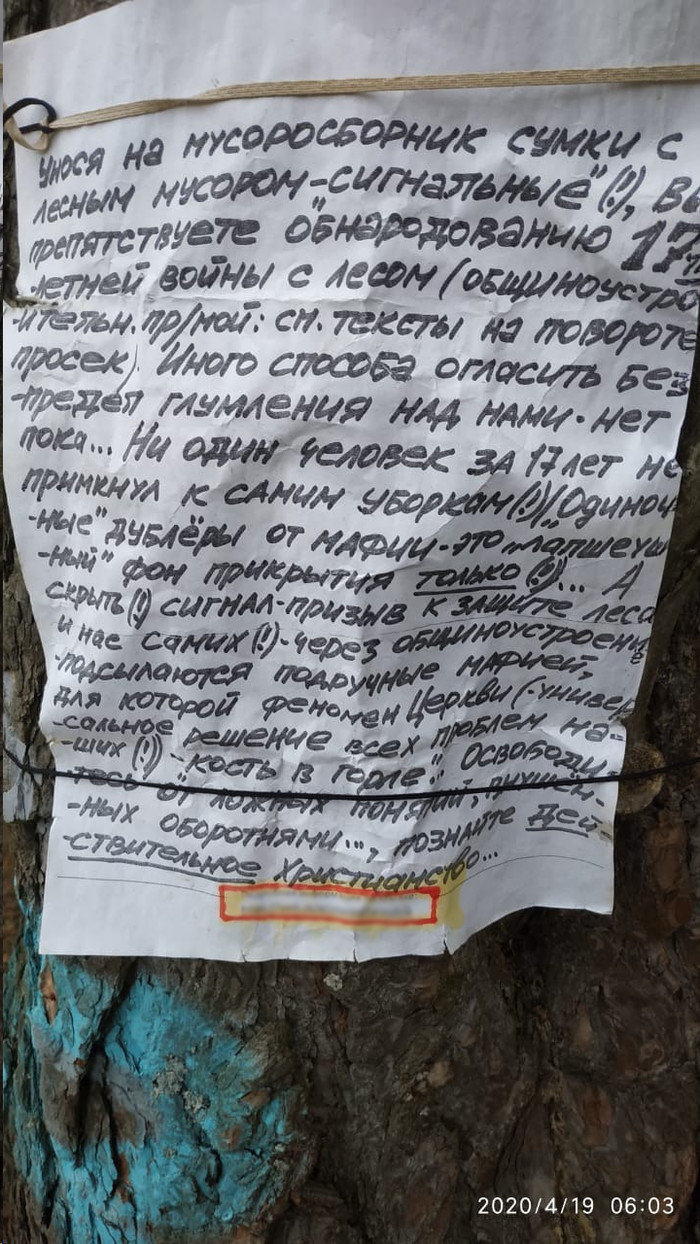 Унося на мусоросборник сумки с
лесным мусором-сигнальные"(!), Вы
препятствуете "обнародованию 17
-летней войны с лесом (общиноустро
-ительн. пр/мой: см. тексты на повороте
просек). Иного способа огласить бес
-предел глумления над нами - нет
пока... Ни один человек за 17 лет не
примкнул к самим уборкам(!)(Одиноч
-ные" дублёры от мафии-это "лапшеуш
-ный" фон прикрытия только (!)... А
скрыть(!) сигнал-призыв к защите леса
и нас самих(!)-через общиноустроен
-подсылаются подручные мафией,
для которой феномен Церкви (-универ
-сальное решение всех проблем на-
-ших (!)) -"кость в горле". Освободи-
-тесь от ложных понятий, внушён-
-ных оборотнями..., познайте Дей-
-ствительное Христианство...
2020/4/19 06:03